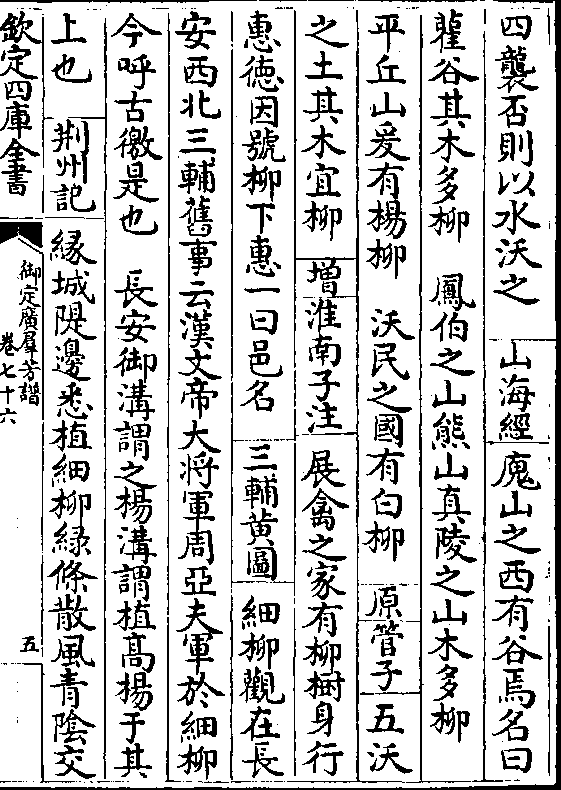 四襲否則以水沃之　山海經　廆山之西有谷焉名曰
雚谷其木多柳　鳳伯之山熊山真陵之山木多柳
平丘山爰有楊柳　沃民之國有白柳　原管子　五沃
之土其木宜柳　增淮南子注　展禽之家有柳樹身行
惠德因號柳下惠一曰邑名　三輔黄圖　細柳觀在長
安西北三輔舊事云漢文帝大将軍周亞夫軍於細柳
今呼古徼是也　長安御溝謂之楊溝謂植髙楊于其
上也　荆州記　緣城隄邊悉植細柳緑條散風青陰交
欽定四庫全書
御定廣羣芳譜
卷七十六
五